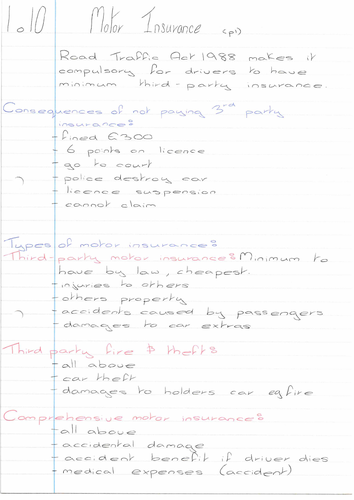 1.10 Motor Insurance (p1)
Road Traffic Act 1988 makes it
compulsory for drivers to have
minimum third-party insurance.
Consequences of not paying 3rd party
insurance:
- fined £300
- 6 points on licence
- go to court
- police destroy car
- licence suspension
- cannot claim
Types of motor insurance:
Third-party motor insurance: Minimum to
have by law, cheapest.
- injuries to others
- others property
- accidents caused by passengers
- damages to car extras
Third party fire & theft:
- all above
- car theft
- damages to holders car eg fire
Comprehensive motor insurance:
- all above
- accidental damage
- accident benefit if driver dies
- medical expenses (accident)